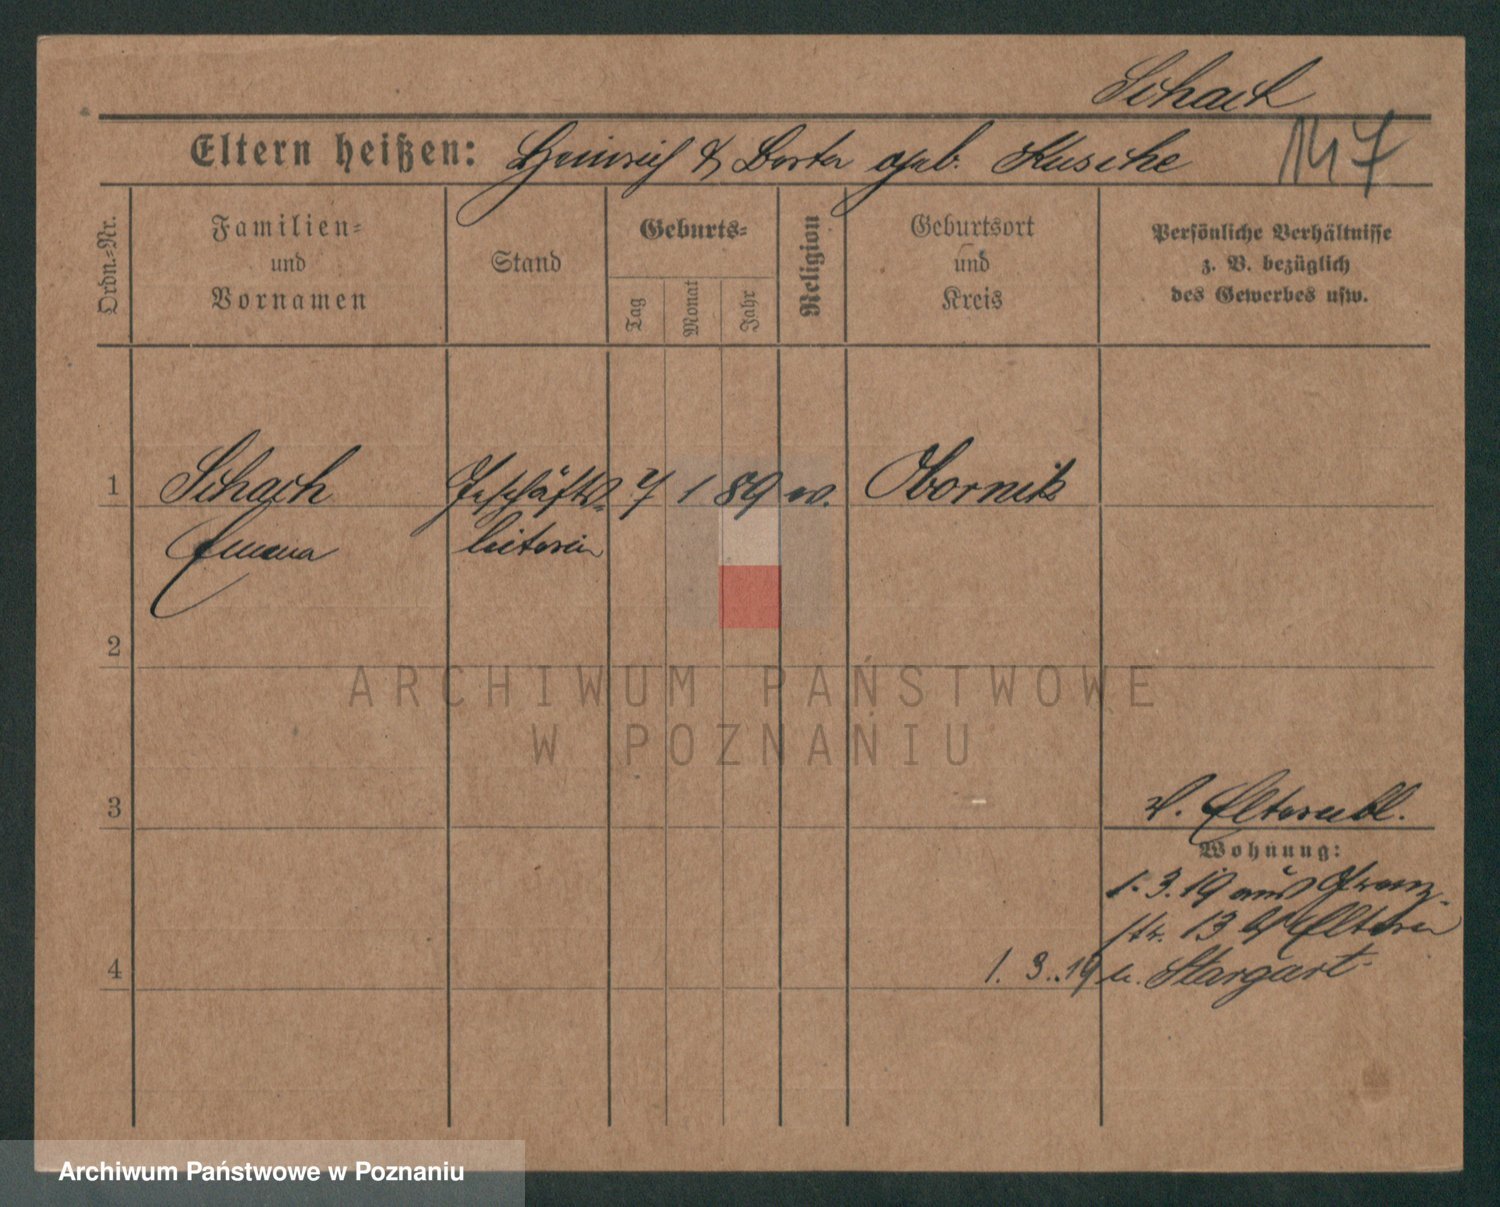 Schach
Eltern heißen: Heinrich & Dorta geb. Kusche
147
Ordn.-Nr.
Familien- und Vornamen
Stand
Geburts-
Tag
Monat
Jahr
Religion
Geburtsort und Kreis
Persönliche Verhältnisse
z. B. bezüglich
des Gewerbes usw.
1 Schach Geschäfts- 7 1 89 ev. Obornik
Emma leiterin
2
ARCHIWUM PAŃSTWOWE
W POZNANIU
3
Elternbl.
Wohnung:
1. 3. 19 aus
str. 13 Eltern
4
1. 3. 19 n. Stargart.
Archiwum Państwowe w Poznaniu